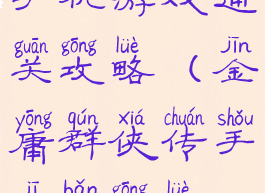 手机游戏通
guān gōng lüè jīn
关攻略（金
yōng qún xiá chuán shǒu
庸群侠传手
jī bǎn gōng lüè